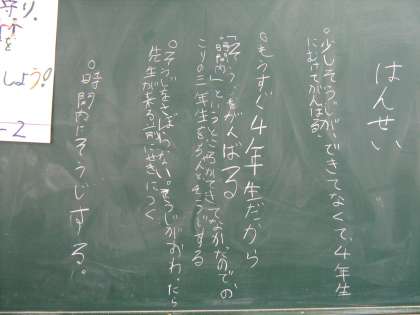 はんせい
。少しそうじが、できてなくて、4年生
にむけてがんばる。
。もうすぐ4年生だから
がんばる
。「時間内」というところが、できてなかったので、の
こりの三年生をちゃんとそうじする
。そうじをさぼらない。そうじがおわったら
先生が来る前にせきにつく
。時間内にそうじする。
守り、
を
しよう!
-2